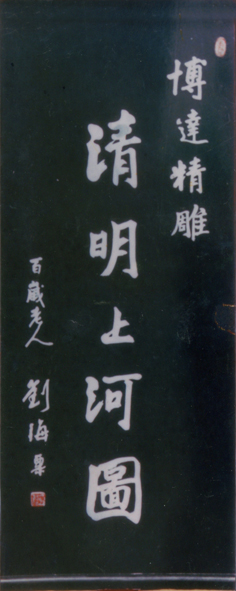 博達精雕
清明上河圖
百歲老人
劉海粟